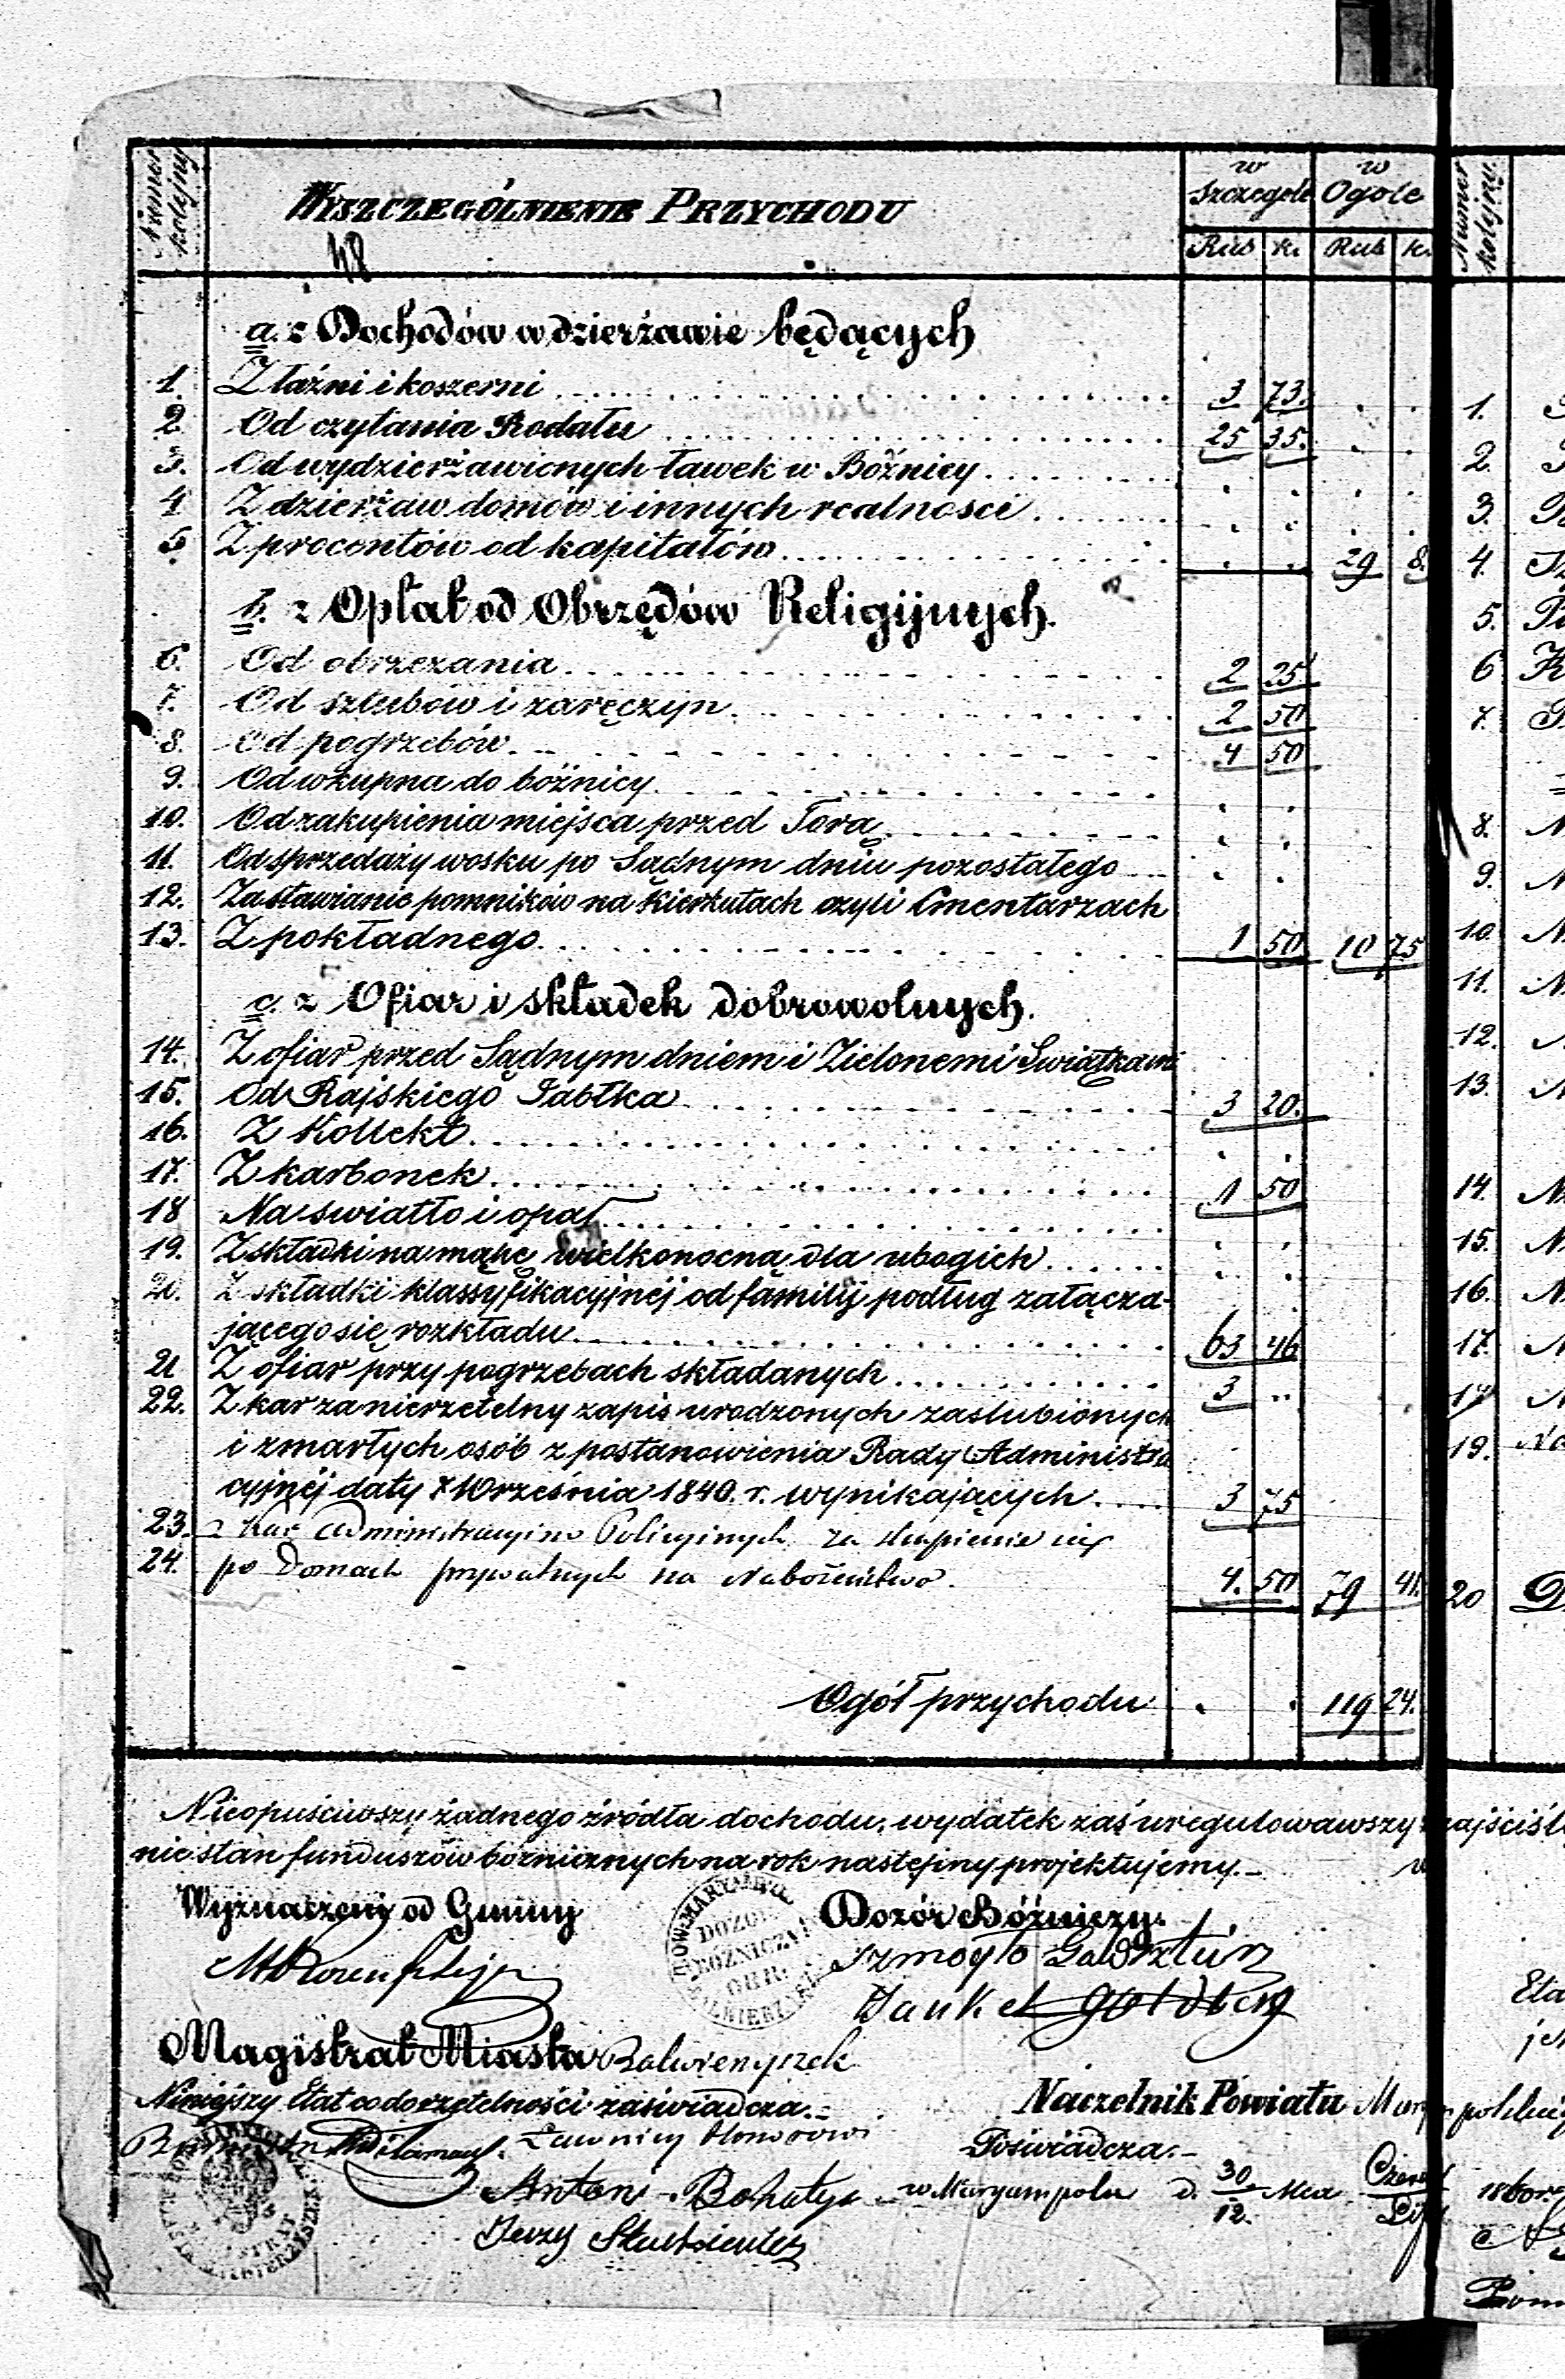 Numer kolejny
WYSZCZEGÓLNIENIE PRZYCHODU
w Szczególe
w Ogóle
Rub k. Rub k.
Numer kolejny.
48
a. z Dochodów w dzierżawie będących
1. Z łaźni i koszerni 3 73.
2. Od czytania Rodału 25 35.
3. Od wydzierżawionych ławek w Bóżnicy
4 Z dzierżaw domów i innych realności
5 Z procentów od kapitałów 29 8.
b. z Opłat od Obrzędów Religijnych.
6. Od obrzezania 2 25
7. Od szlubów i zaręczyn 2 50
8. Od pogrzebów 4 50
9. Od wkupna do bóżnicy
10. Od zakupienia miejsca przed Torą
11. Od sprzedaży wosku po Sądnym dniu pozostałego
12. Za stawianie pomników na kierkutach czyli Cmentarzach
13. Z pokładnego 1 50 10 75
c. z Ofiar i składek dobrowolnych.
14. Z ofiar przed Sądnym dniem i Zielonemi Swiątkami
15. Od Rajskiego Jabłka 3 20.
16. Z Kollekt
17. Z karbonek 1 50
18 Na swiatło i opał
19. Z składki na mąkę wielkonocną dla ubogich
20. Z składki klassyfikacyjnéj od familij podług załącza-
jącego się rozkładu 63 46
21 Z ofiar przy pogrzebach składanych 3 ..
22. Z kar za nierzetelny zapis urodzonych zaslubionych
i zmarłych osób z postanowienia Rady Administra
cyjnéj daty 7 Września 1840. r. wynikających 3 75
23. z Kar Administracyjno Policyjnych za skupienie się
24. po Domach prywatnych na Nabożeństwo. 4. 50 79 41.
Ogół przychodu 119 24.
1.
2.
3.
4.
5.
6
7.
8.
9.
10.
11.
12.
13.
14.
15.
16.
17.
17
19.
20
Nieopuściwszy żadnego źródła dochodu, wydatek zaś uregulowawszy najściśl
nie stan funduszów bóżnicznych na rok następny projektujemy.
Wyznaczeni od Gminy
Dozór Bóżniczy.
DOZOR BÓŻNICZY OKR.
Jankel Goldberg
Magistrat Miasta Balwierzyszek
Niniejszy Etat co do rzetelności zaświadcza.
Naczelnik Powiatu
Ławnicy Honorowi
Poświadcza.
Antoni
w Maryampolu d. 30/12. 1860 r.
Jerzy